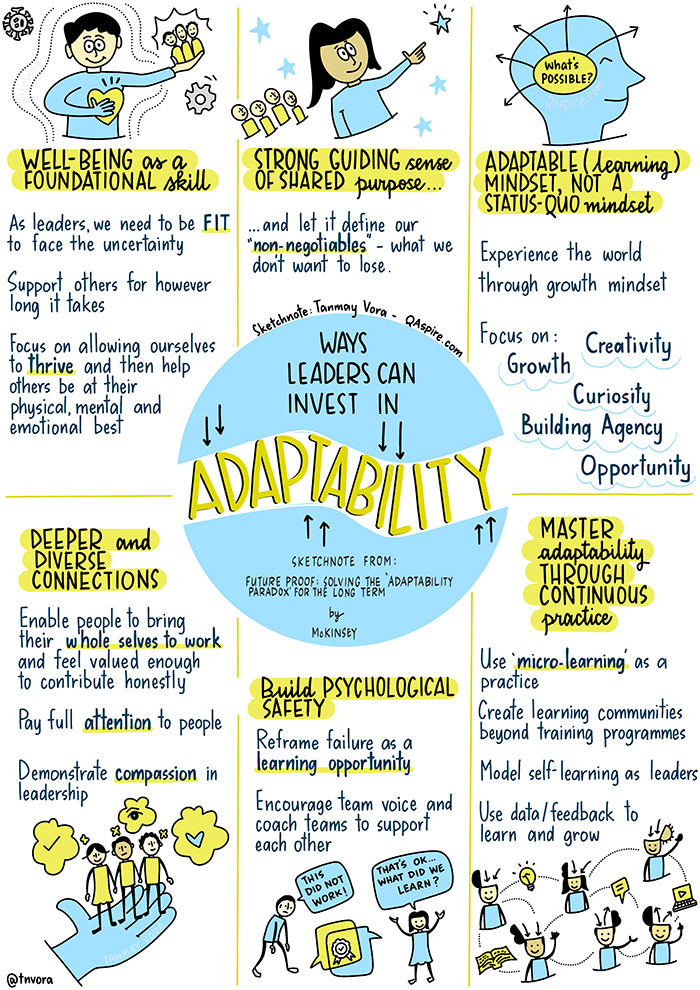 WELL-BEING as a
FOUNDATIONAL skill
As leaders, we need to be FIT
to face the uncertainty
Support others for however
long it takes
Focus on allowing ourselves
to thrive and then help
others be at their
physical, mental and
emotional best
STRONG GUIDING sense
OF SHARED purpose...
...and let it define our
"non-negotiables" - what we
don't want to lose.
What's
POSSIBLE?
QAspire.com
ADAPTABLE (learning)
MINDSET, NOT A
STATUS-QUO mindset
Experience the world
through growth mindset
Focus on:
Creativity
Growth
Curiosity
Building Agency
Opportunity
Sketchnote: Tanmay Vora - QAspire.com
WAYS
LEADERS CAN
INVEST IN
ADAPTABILITY
SKETCHNOTE FROM:
FUTURE PROOF: SOLVING THE 'ADAPTABILITY
PARADOX' FOR THE LONG TERM
by
McKINSEY
DEEPER and
DIVERSE
CONNECTIONS
Enable people to bring
their whole selves to work
and feel valued enough
to contribute honestly
Pay full attention to people
Demonstrate compassion in
leadership
Build PSYCHOLOGICAL
SAFETY
Reframe failure as a
learning opportunity
Encourage team voice and
coach teams to support
each other
THIS
DID NOT
WORK!
THAT'S OK...
WHAT DID WE
LEARN?
MASTER
adaptability
THROUGH
CONTINUOUS
practice
Use 'micro-learning' as a
practice
Create learning communities
beyond training programmes
Model self-learning as leaders
Use data/feedback to
learn and grow
@tnvora